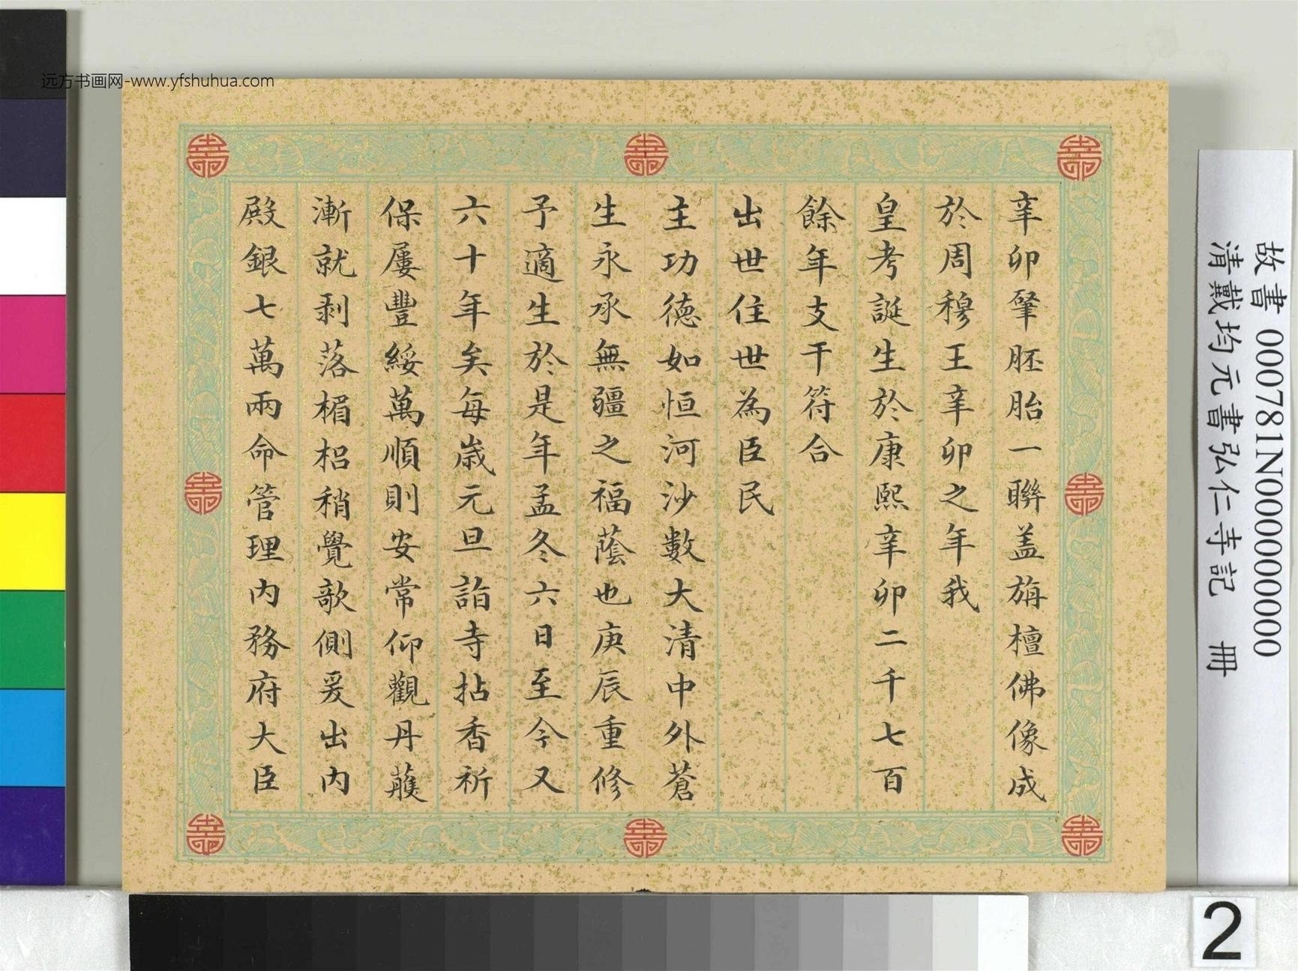 远方书画网-www.yfshuhua.com
辛卯肇胚胎一聨盖旃檀佛像成
於周穆王辛卯之年我
皇考誕生於康熙辛卯二千七百
餘年支干符合
出世住世為臣民
主功徳如恒河沙數大清中外蒼
生永承無疆之福蔭也庚辰重修
予適生於是年孟冬六日至今又
六十年矣每歳元旦詣寺拈香祈
保屢豐綏萬順則安常仰觀丹雘
漸就剥落楣梠稍覺欹側爰出内
殿銀七萬兩命管理内務府大臣
故書 000781N000000000
清戴均元書弘仁寺記 冊
2